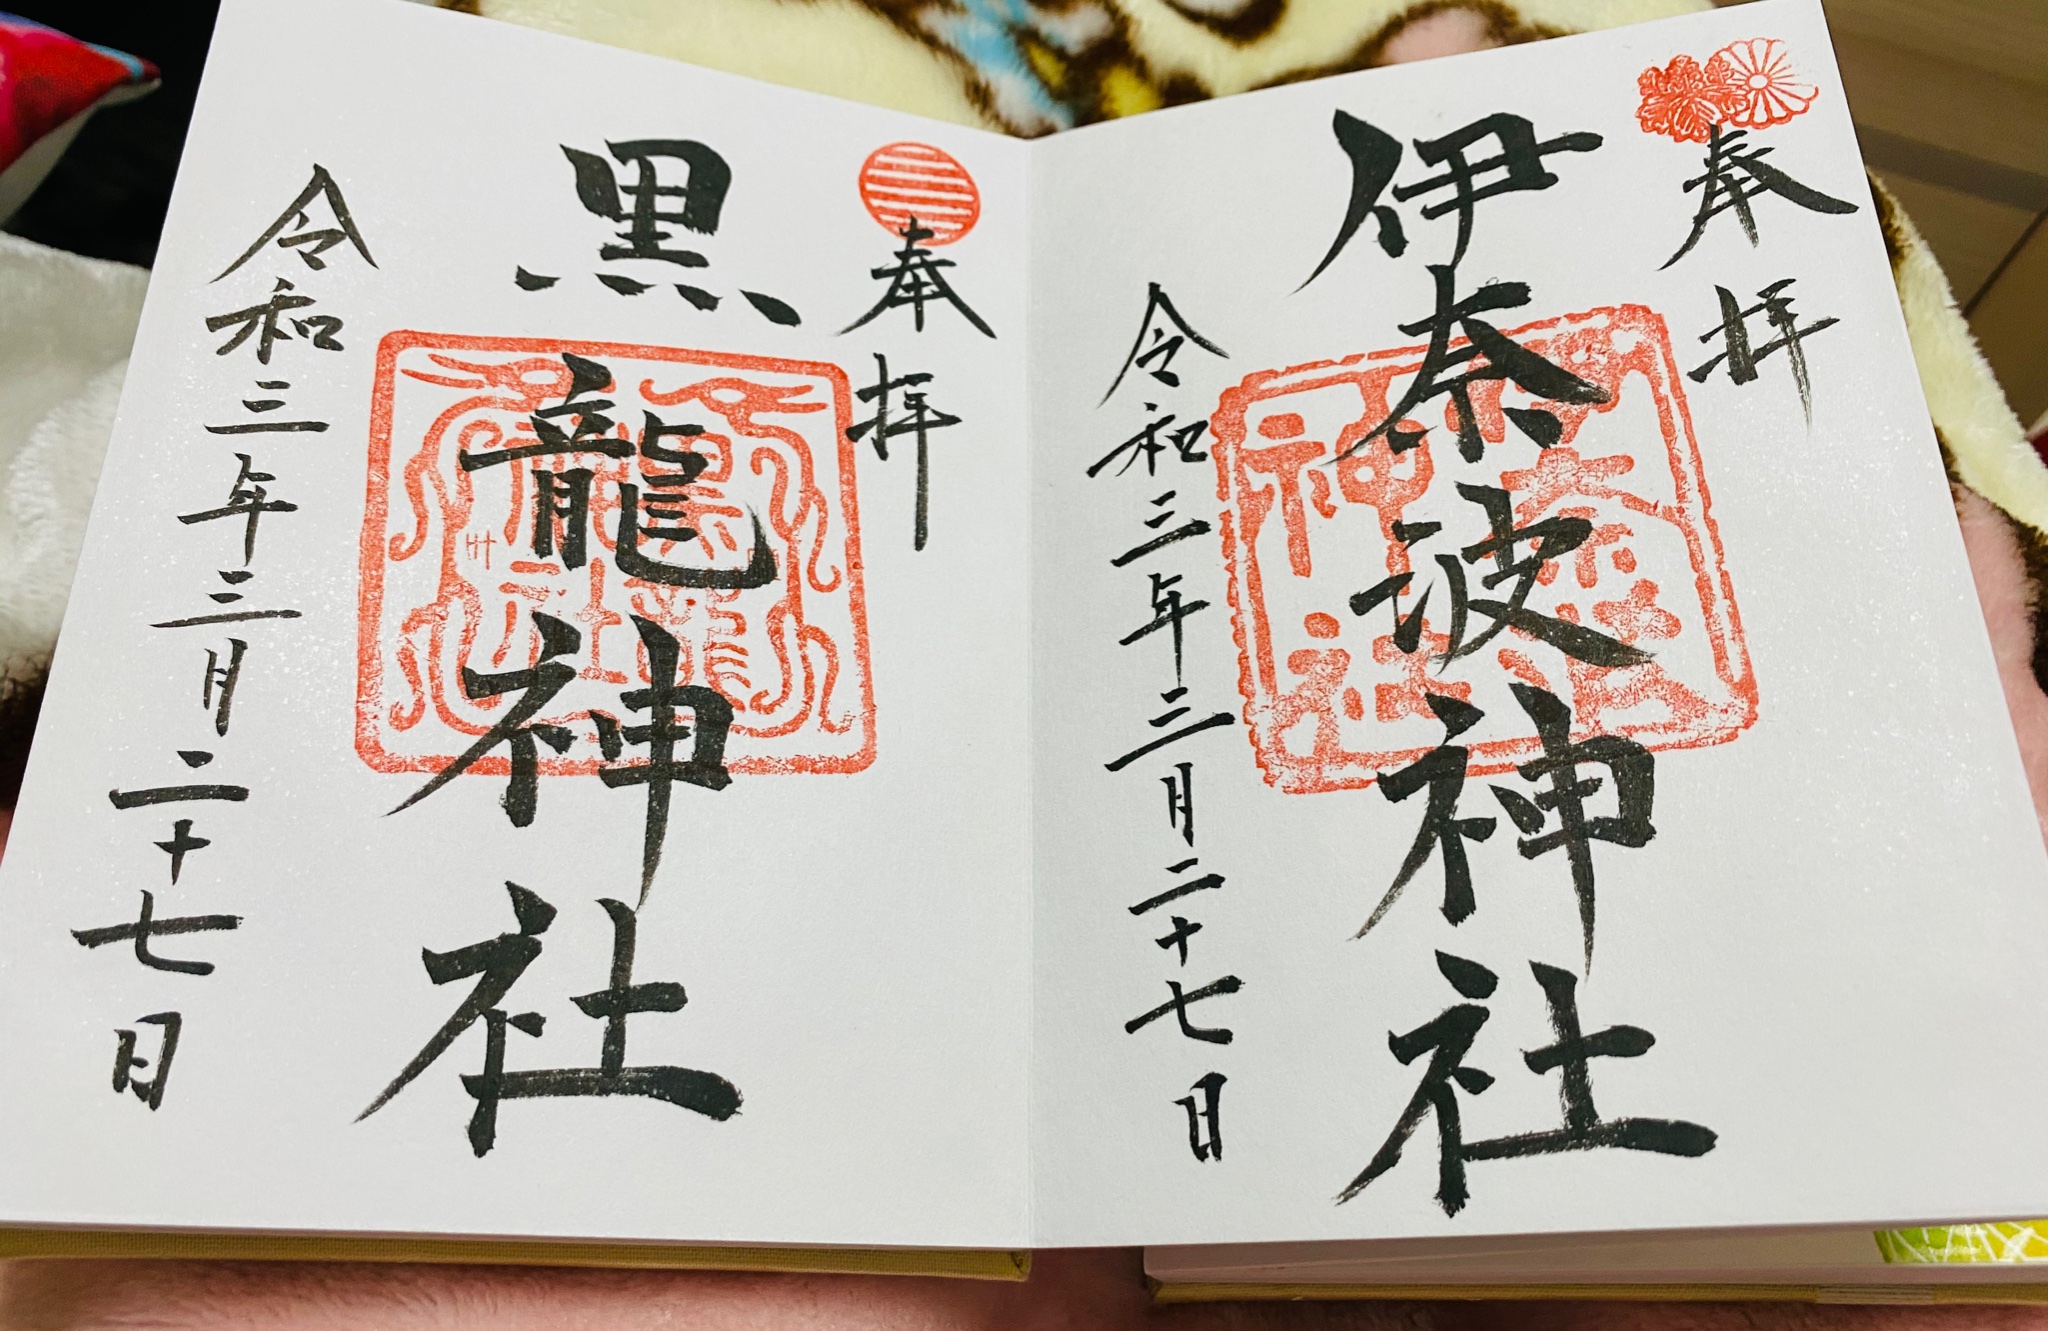 奉拝
伊奈波神社
令和三年三月二十七日
奉拝
黒龍神社
令和三年三月二十七日